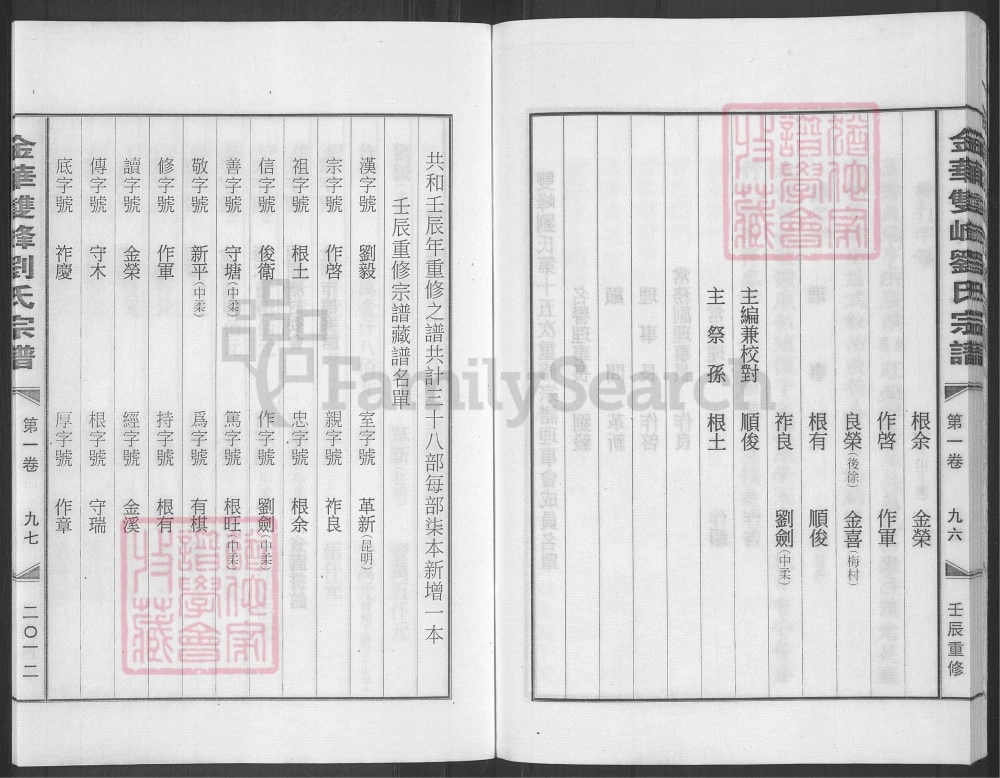 金華雙峰劉氏宗譜 第一卷 九六 壬辰重修
根余 金榮
作啓 作軍
良榮(後徐) 金喜(梅村)
根有 順俊
祚良 劉劍(中柔)
主編兼校對 順俊
主祭孫 根土
共和壬辰年重修之譜共計三十八部每部柒本新增一本
壬辰重修宗譜藏譜名單
漢字號 劉毅 室字號 革新(昆明)
宗字號 作啓 親字號 祚良
祖字號 根土 忠字號 根余
信字號 俊衛 作字號 劉劍(中柔)
善字號 守塘(中柔) 篤字號 根旺(中柔)
敬字號 新平(中柔) 爲字號 有棋
修字號 作軍 持字號 根有
讀字號 金榮 經字號 金溪
傳字號 守木 根字號 守瑞
底字號 祚慶 厚字號 作章
金華雙峰劉氏宗譜 第一卷 九七 二〇一二
FamilySearch